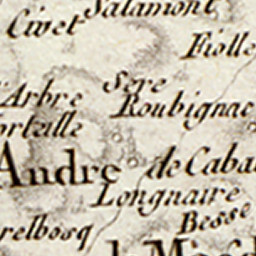 Salamont
Civet
Fiolle
Sere
l'Arbre
Roubignac
orteille
Andre de Caba
Longnaire
Besse
relbosq